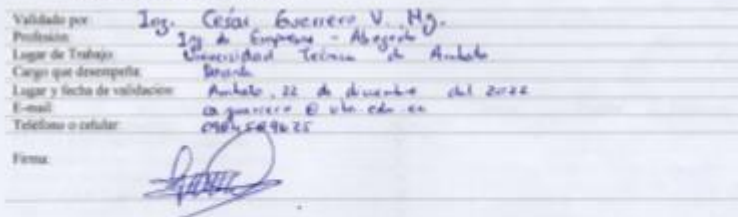 Validado por: Ing. Cesar Guerrero V. Mg.
Profesión: Ing de Empresas - Abogado
Lugar de Trabajo: Universidad Técnica de Ambato
Cargo que desempeña: Docente
Lugar y fecha de validación: Ambato, 22 de diciembre del 2022
E-mail: ca.guerrero@uta.edu.ec
Teléfono o celular:
Firma: